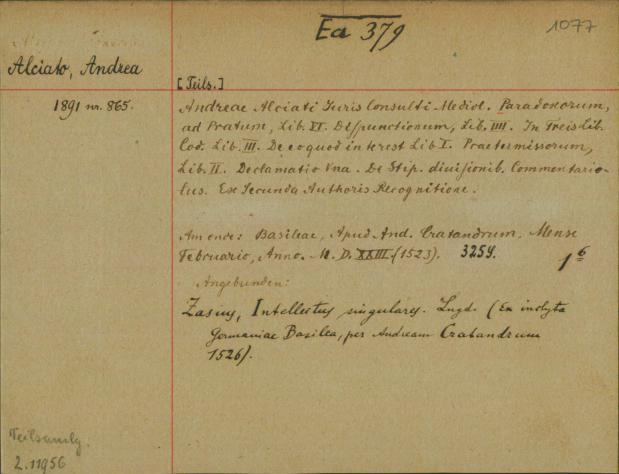 Ea 379
1077
Alciato, Andrea
[Teils.]
1891 nr. 865.
Andreae Alciati Juris Consulti Mediol. Paradoxorum,
ad Pratum, Lib. VI. Dispunctionum, Lib. IIII. In Treis Lib.
Cod. Lib. III. De eo quod interest Lib I. Praetermissorum,
Lib. II. Declamatio Vna. De Stip. divisionib. Commentario-
lus. Ex Secunda Authoris Recognitione.
Am ende: Basileae, Apud And. Cratandrum, Mense
Februario, Anno. M. D. XXIII. (1523). 3254.
1 6
Angebunden:
Zasius, Intellectus singulares. Lugd. (Ex inclyta
Germaniae Basilea, per Andream Cratandrum
1526).
Teilsamlg.
2.11956